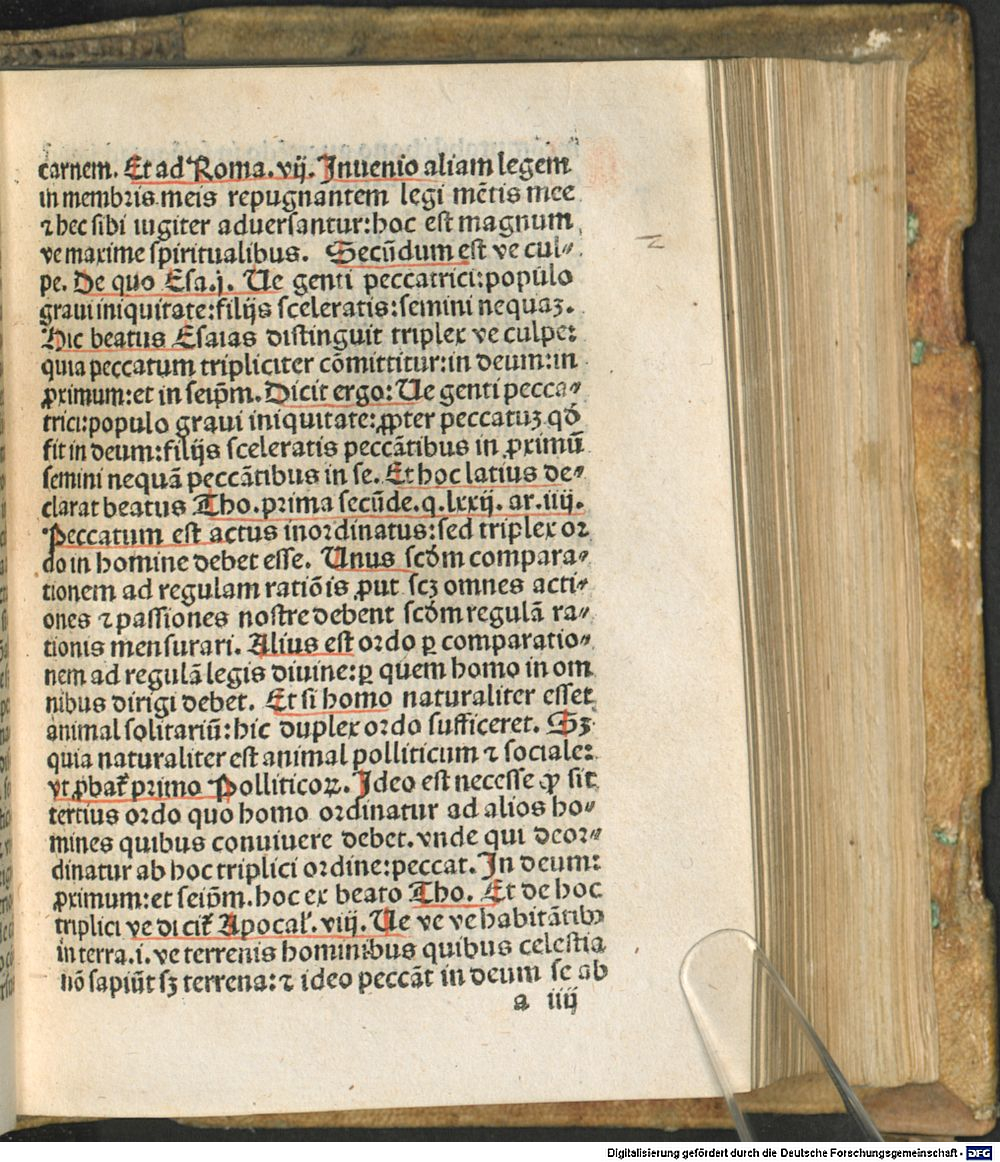 carnem. Et ad Roma. vij. Inuenio aliam legem
in membris meis repugnantem legi mētis mee
⁊ hec sibi iugiter aduersantur: hoc est magnum
ve maxime spiritualibus. Secūdum est ve cul⸗
pe. De quo Esa.j. Ue genti peccatrici: populo
graui iniquitate: filijs sceleratis: semini nequaꝫ.
Hic beatus Esaias distinguit triplex ve culpe:
quia peccatum tripliciter cōmittitur: in deum: in
ꝓximum: et in seip̄m. Dicit ergo: Ue genti pecca⸗
trici: populo graui iniquitate: ꝓpter peccatuꝫ qd̄
fit in deum: filijs sceleratis peccātibus in ꝓximū
semini nequā peccātibus in se. Et hoc latius de⸗
clarat beatus Tho. prima secūde. q. lxxij. ar. iiij.
Peccatum est actus inordinatus: sed triplex or
do in homine debet esse. Unus scd̄m compara⸗
tionem ad regulam ratiōis ꝓut scꝫ omnes acti⸗
ones ⁊ passiones nostre debent scd̄m regulā ra⸗
tionis mensurari. Alius est ordo ꝑ comparatio⸗
nem ad regulā legis diuine: ꝑ quem homo in om
nibus dirigi debet. Et si homo naturaliter esset
animal solitariū: hic duplex ordo sufficeret. Sꝫ
quia naturaliter est animal polliticum ⁊ sociale:
vt ꝓbat᷑ primo Polliticoꝝ. Ideo est necesse ꝙ sit
tertius ordo quo homo ordinatur ad alios ho⸗
mines quibus conuiuere debet. vnde qui deor⸗
dinatur ab hoc triplici ordine: peccat. In deum:
ꝓximum: et seip̄m. hoc ex beato Tho. Et de hoc
triplici ve dicit᷑ Apocal̓. viij. Ue ve ve habitātibꝰ
in terra .i. ve terrenis hominibus quibus celestia
nō sapiūt sꝫ terrena: ⁊ ideo peccāt in deum se ab
a iiij
Digitalisierung gefördert durch die Deutsche Forschungsgemeinschaft - DFG